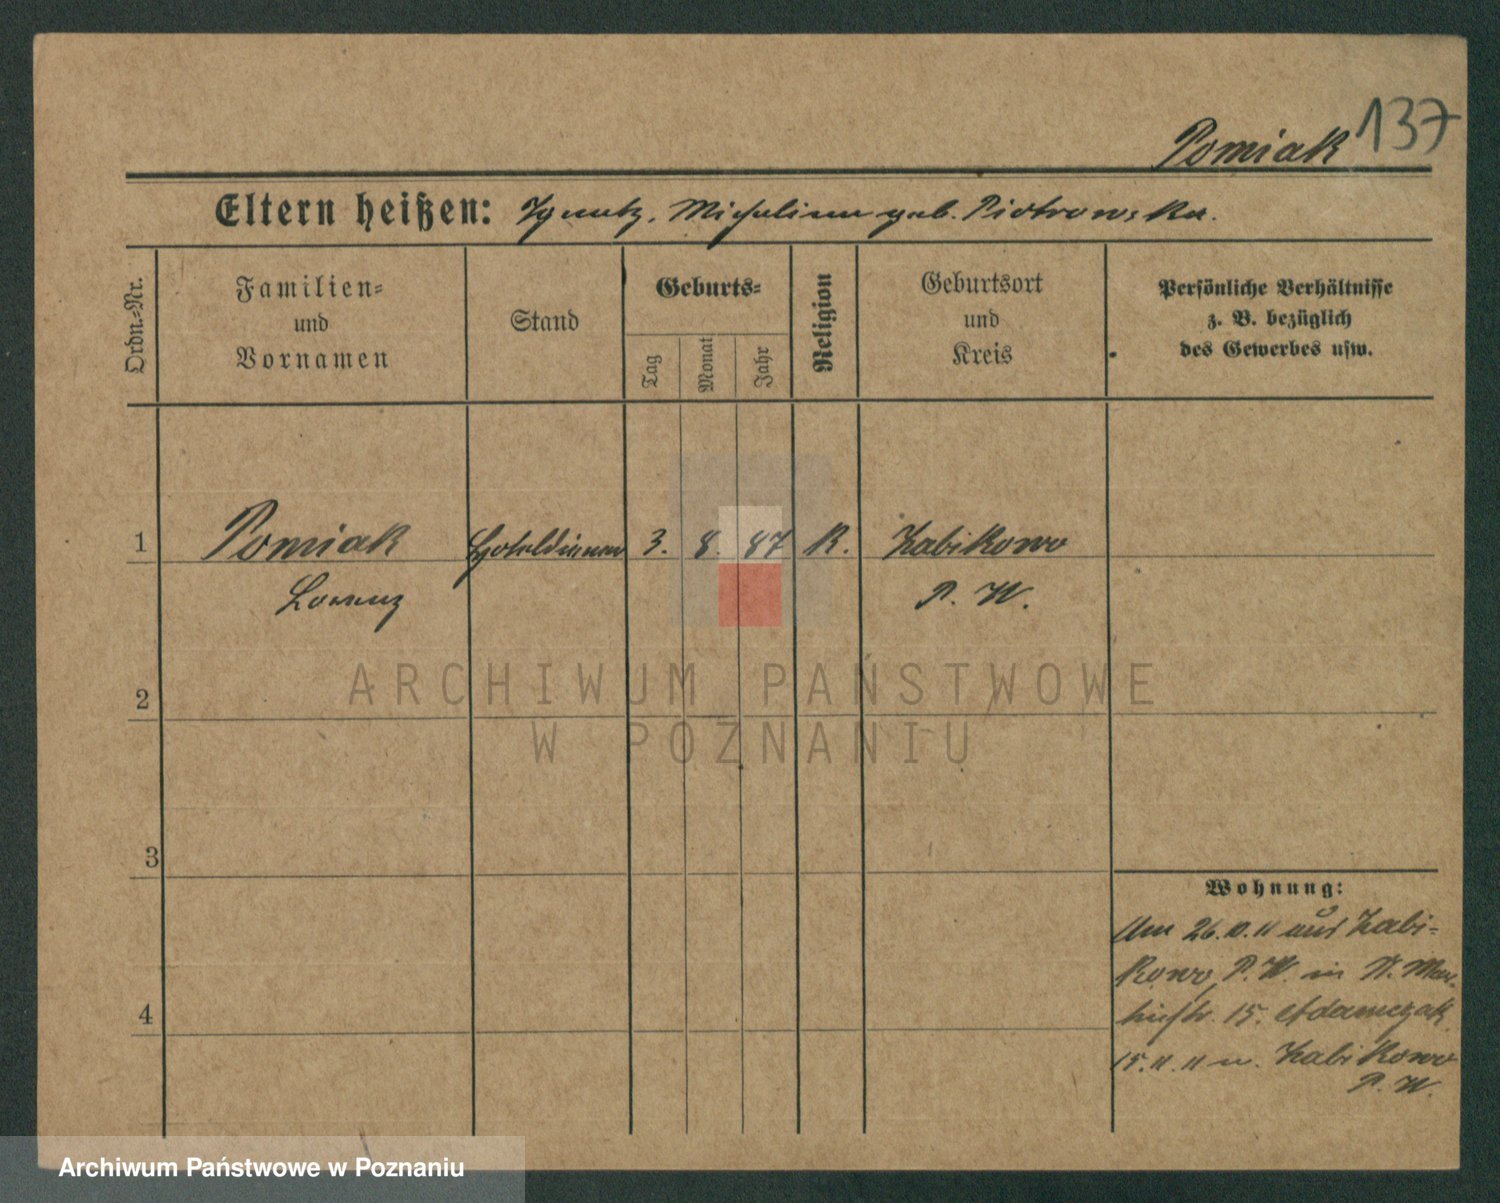 137
Pomiak
Eltern heißen: Ignatz, Michalina geb. Piotrowska.
Ordn.-Nr.
Familien-
und
Vornamen
Stand
Geburts-
Tag
Monat
Jahr
Religion
Geburtsort
und
Kreis
Persönliche Verhältnisse
z. B. bezüglich
des Gewerbes usw.
1 Pomiak Hoteldiener 3. 8. 87 K. Zabikowo
Lorenz P. W.
ARCHIWUM PAŃSTWOWE
W POZNANIU
2
3
4
Wohnung:
Am 26. 10. 11 aus Zabi-
kowo, P. W. in St. Mar-
tinstr. 15. Adamczak
15. 11. 11 n. Zabikowo
P. W.
Archiwum Państwowe w Poznaniu